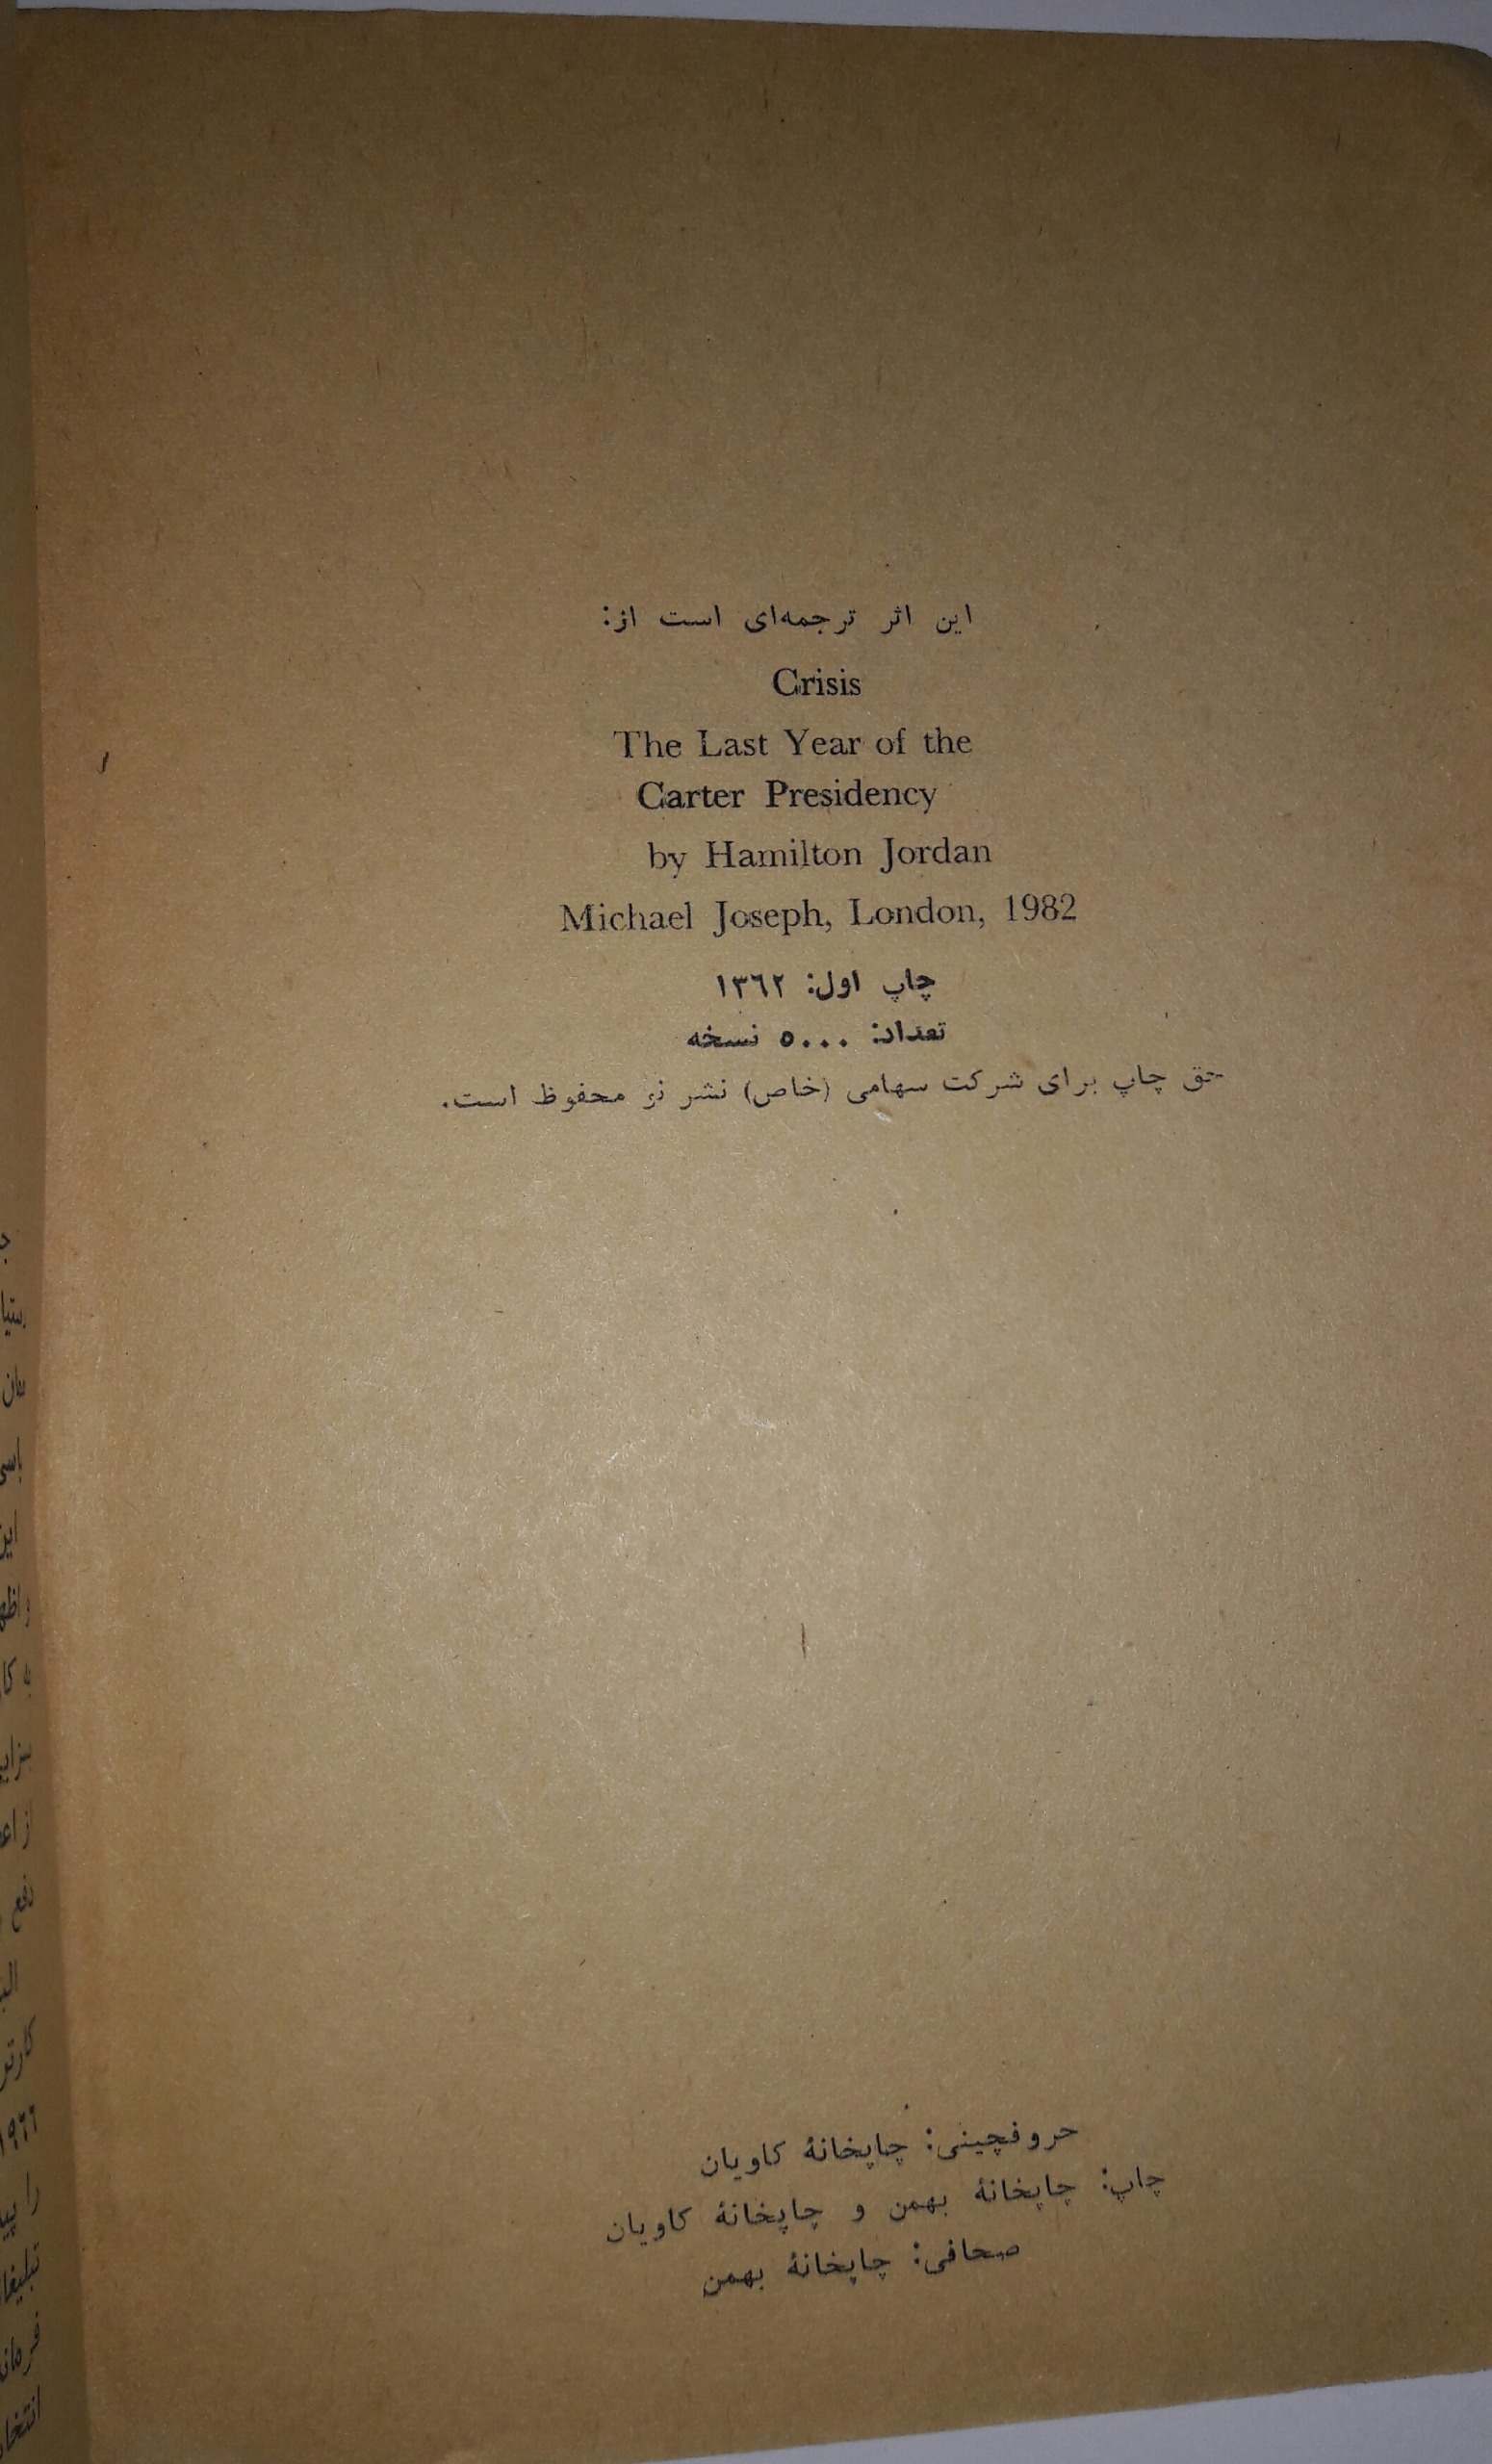 این اثر ترجمه‌ای است از:
Crisis
The Last Year of the
Carter Presidency
by Hamilton Jordan
Michael Joseph, London, 1982
چاپ اول: ١٣٦٢
تعداد: ٥٠٠٠ نسخه
حق چاپ برای شرکت سهامی (خاص) نشر نو محفوظ است.
حروفچینی: چاپخانهٔ کاویان
چاپ: چاپخانهٔ بهمن و چاپخانهٔ کاویان
صحافی: چاپخانهٔ بهمن